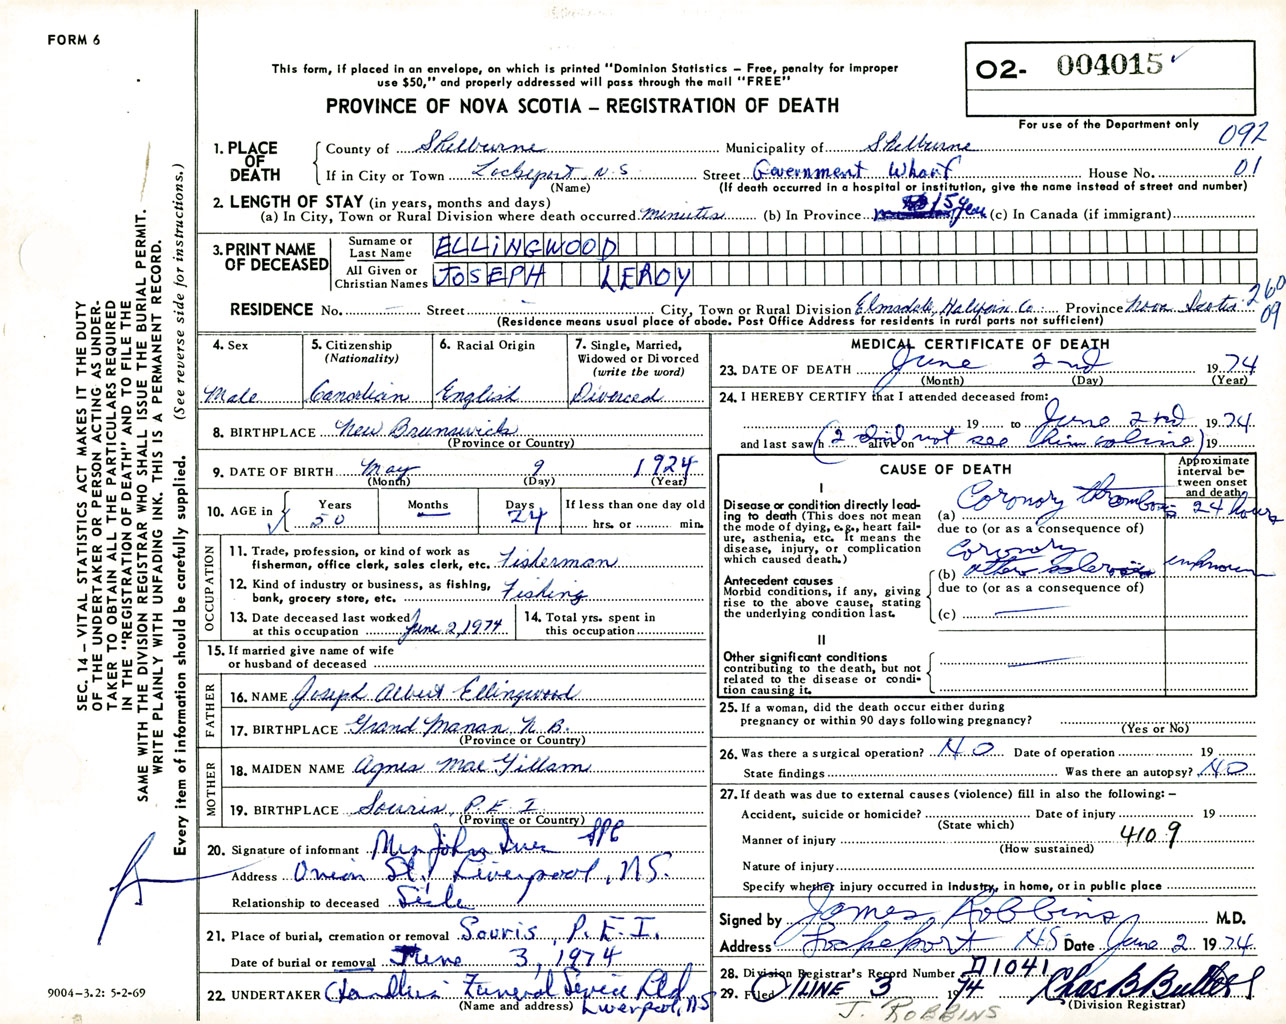 FORM 6
This form, if placed in an envelope, on which is printed "Dominion Statistics – Free, penalty for improper
use $50," and properly addressed will pass through the mail "FREE"
PROVINCE OF NOVA SCOTIA – REGISTRATION OF DEATH
O2- 004015
For use of the Department only
092
01
1. PLACE OF DEATH
County of Shelburne Municipality of Shelburne
If in City or Town Lockeport N.S. Street Government Wharf House No.
(Name) (If death occurred in a hospital or institution, give the name instead of street and number)
2. LENGTH OF STAY (in years, months and days)
(a) In City, Town or Rural Division where death occurred minutes (b) In Province 15 years (c) In Canada (if immigrant)
3. PRINT NAME OF DECEASED
Surname or Last Name ELLINGWOOD
All Given or Christian Names JOSEPH LEROY
RESIDENCE No. – Street – City, Town or Rural Division Elmsdale, Halifax Co. Province Nova Scotia
260
09
(Residence means usual place of abode. Post Office Address for residents in rural parts not sufficient)
4. Sex
Male
5. Citizenship
(Nationality)
Canadian
6. Racial Origin
English
7. Single, Married,
Widowed or Divorced
(write the word)
Divorced
8. BIRTHPLACE New Brunswick
(Province or Country)
9. DATE OF BIRTH May 9 1924
(Month) (Day) (Year)
10. AGE in
Years Months Days If less than one day old
50 — 24 hrs. or min.
OCCUPATION
11. Trade, profession, or kind of work as
fisherman, office clerk, sales clerk, etc. Fisherman
12. Kind of industry or business, as fishing,
bank, grocery store, etc. Fishing
13. Date deceased last worked
at this occupation June 2, 1974
14. Total yrs. spent in
this occupation
15. If married give name of wife
or husband of deceased
FATHER
16. NAME Joseph Albert Ellingwood
17. BIRTHPLACE Grand Manan N.B.
(Province or Country)
MOTHER
18. MAIDEN NAME Agnes Mae Gillam
19. BIRTHPLACE Souris, P.E.I
(Province or Country)
20. Signature of informant Mrs John
Address Union St. Liverpool, N.S.
Relationship to deceased
21. Place of burial, cremation or removal Souris, P.E.I.
Date of burial or removal June 3, 1974
22. UNDERTAKER Chandlers Funeral Service Ltd
(Name and address) Liverpool, N.S
MEDICAL CERTIFICATE OF DEATH
23. DATE OF DEATH June 2nd 1974
(Month) (Day) (Year)
24. I HEREBY CERTIFY that I attended deceased from:
19 to June 2nd 1974
and last saw h alive on 19
(I did not see him alive)
CAUSE OF DEATH
Approximate
interval be-
tween onset
and death
I
Disease or condition directly lead-
ing to death (This does not mean
the mode of dying, e.g., heart fail-
ure, asthenia, etc. It means the
disease, injury, or complication
which caused death.)
(a) Coronary thrombosis 24 hours
due to (or as a consequence of)
Antecedent causes
Morbid conditions, if any, giving
rise to the above cause, stating
the underlying condition last.
Coronary
(b) atherosclerosis unknown
due to (or as a consequence of)
(c) —
II
Other significant conditions
contributing to the death, but not
related to the disease or condi-
tion causing it.
25. If a woman, did the death occur either during
pregnancy or within 90 days following pregnancy?
(Yes or No)
26. Was there a surgical operation? NO Date of operation 19
State findings Was there an autopsy? NO
27. If death was due to external causes (violence) fill in also the following: –
Accident, suicide or homicide? Date of injury 19
(State which)
Manner of injury 410 9
(How sustained)
Nature of injury
Specify whether injury occurred in industry, in home, or in public place
Signed by James Robbins M.D.
Address Lockeport NS Date June 2 1974
28. Division Registrar's Record Number 1041
29. Filed JUNE 3 1974 Chas B Butler
(Division Registrar)
J. ROBBINS
SEC. 14 – VITAL STATISTICS ACT MAKES IT THE DUTY
OF THE UNDERTAKER OR PERSON ACTING AS UNDER-
TAKER TO OBTAIN ALL THE PARTICULARS REQUIRED
IN THE "REGISTRATION OF DEATH" AND TO FILE THE
SAME WITH THE DIVISION REGISTRAR WHO SHALL ISSUE THE BURIAL PERMIT.
WRITE PLAINLY WITH UNFADING INK. THIS IS A PERMANENT RECORD.
Every item of information should be carefully supplied. (See reverse side for instructions.)
9004–3.2: 5-2-69